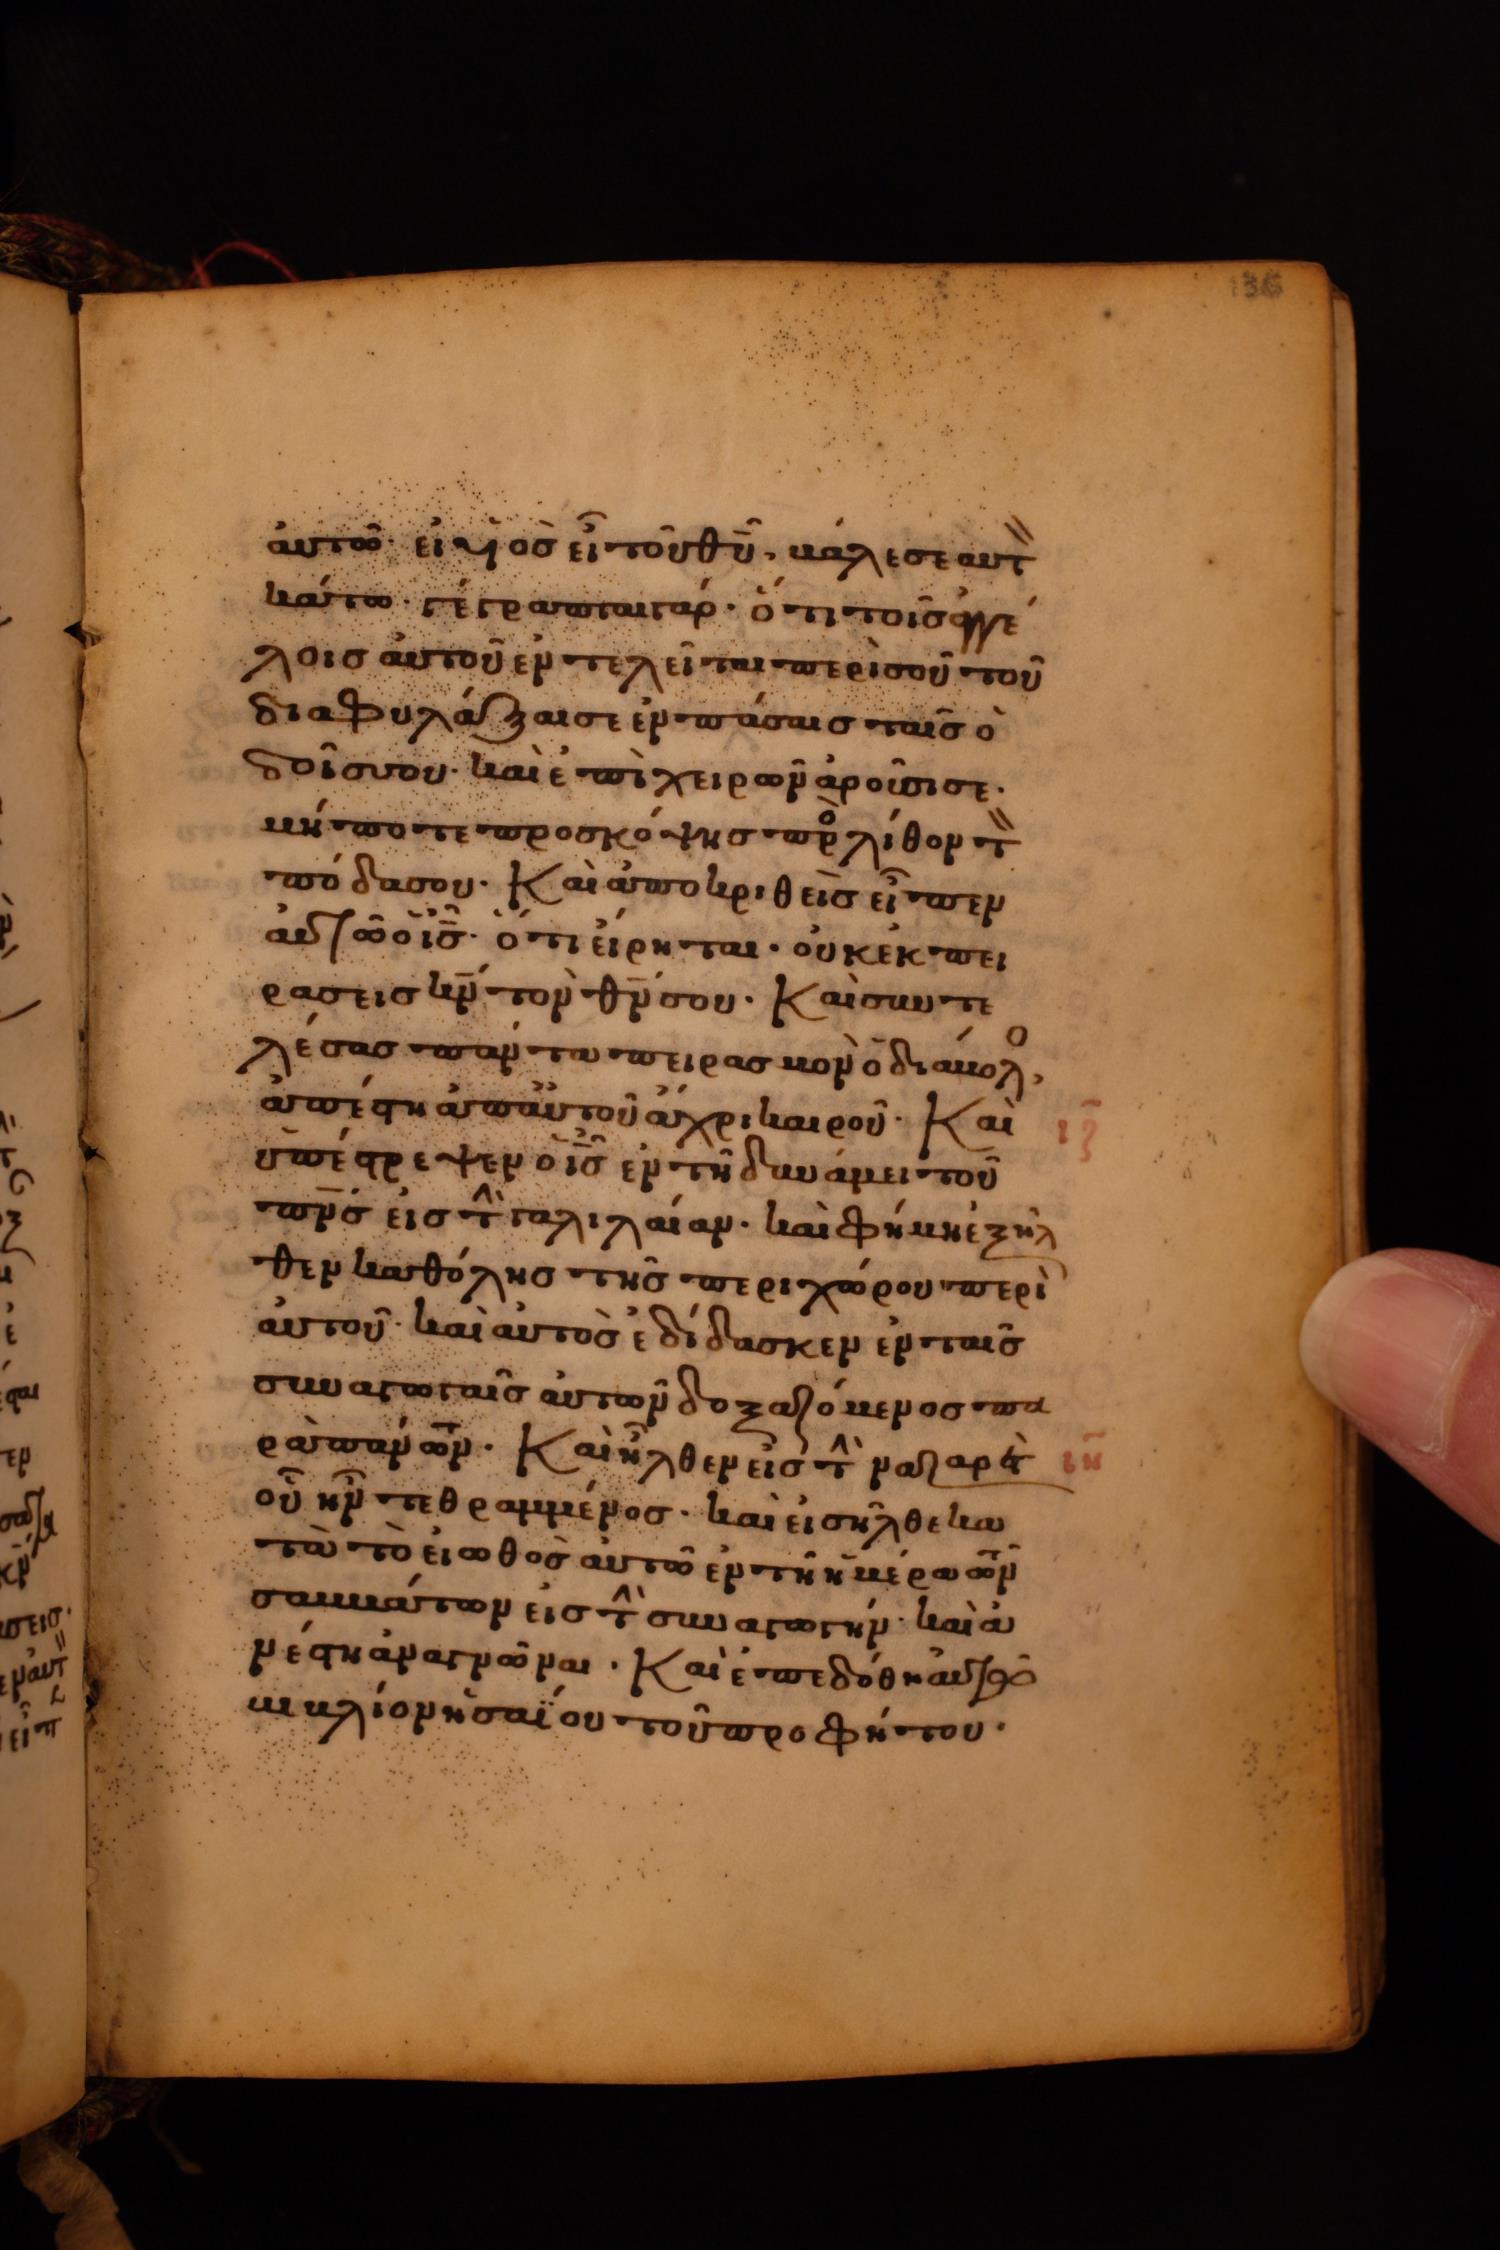 136
αυτω· ει υιος ει του θυ, βάλε σεαυτ
κάτω· γέγραπται γάρ· ὅτι τοῖς ἀγγέ
λοις αὐτοῦ ἐντελεῖται περὶ σοῦ τοῦ
διαφυλάξαι σε ἐν πάσαις ταῖς ὁ
δοῖς σου· καὶ ἐπὶ χειρῶν ἀροῦσι σε·
μήποτε προσκόψης πρὸ λίθον τ
πόδα σου· Καὶ ἀποκριθεὶς εἶπεν
αὐτῶ ὁ ις· ὅτι εἴρηται· οὐκ ἐκπει
ράσεις κν τὸν θν σου· Καὶ συντε
λέσας πάντα πειρασμὸν ὁ διάβολο,
ἀπέστη ἀπ αὐτοῦ ἄχρι καιροῦ· Καὶ
ιζ
ὑπέστρεψεν ὁ ις ἐν τῆ δυνάμει τοῦ
πνς εἰς τὴν γαλιλαίαν· καὶ φήμη ἐξῆλ
θεν καθόλης τῆς περιχώρου περὶ
αὐτοῦ· καὶ αὐτὸς ἐδίδασκεν ἐν ταῖς
συναγωγαῖς αὐτῶν δοξαζόμενος πα
ρὰ πάντων· Καὶ ἦλθεν εἰς τὴν ναζαρὲτ
ιη
οὗ ἦν τεθραμμένος· καὶ εἰσῆλθε κα
τὰ τὸ εἰωθὸς αὐτῶ ἐν τῆ ἡμέρα τῶν
σαββάτων εἰς τὴν συναγωγήν· καὶ ἀ
νέστη ἀναγνῶναι· Καὶ ἐπεδόθη αὐτῶ
βιβλίον ἠσαΐου τοῦ προφήτου·